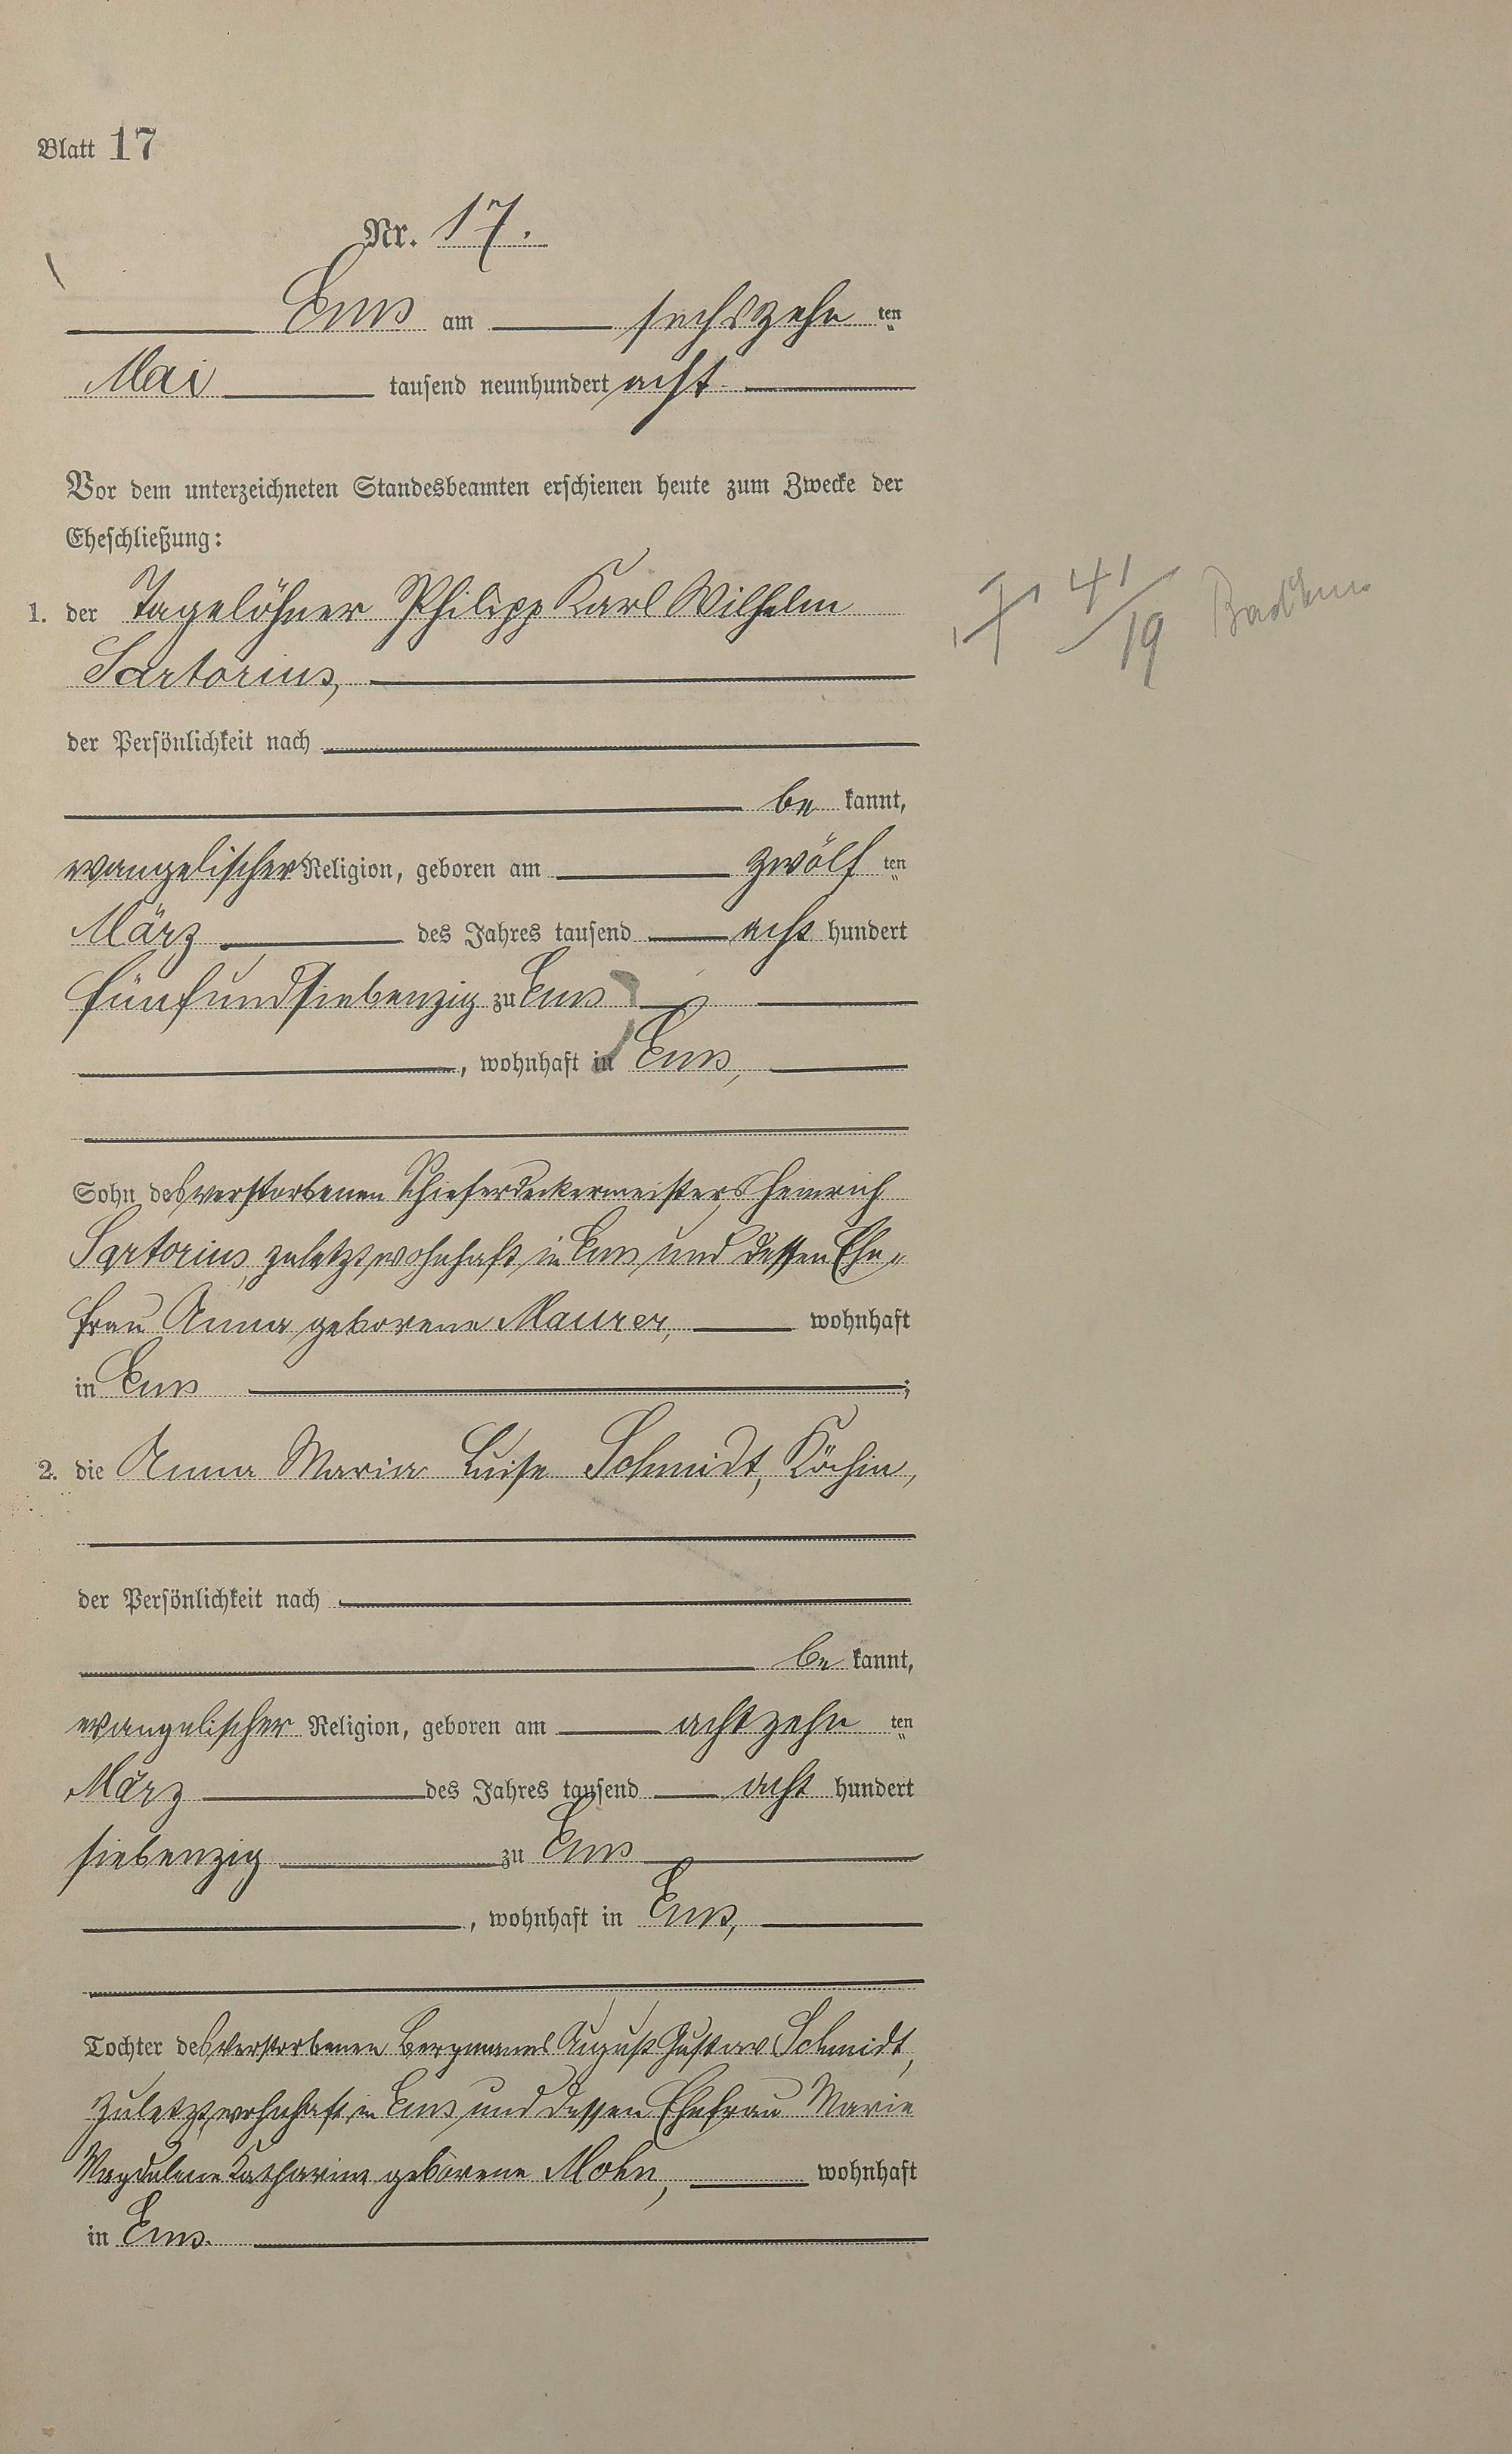 Blatt 17
Nr. 17.
Ems am sechszehn ten
Mai tausend neunhundert acht
Vor dem unterzeichneten Standesbeamten erschienen heute zum Zwecke der
Eheschließung:
1. der Tagelöhner Philipp Karl Wilhelm
Sartorius,
† 41/19 Bad Ems
der Persönlichkeit nach
be kannt,
evangelischer Religion, geboren am zwölf ten
März des Jahres tausend acht hundert
fünfundsiebenzig zu Ems
, wohnhaft in Ems,
Sohn des verstorbenen Schieferdeckermeisters Heinrich
Sartorius, zuletzt wohnhaft in Ems und dessen Ehe-
frau Anna geborene Maurer, wohnhaft
in Ems ;
2. die Anna Maria Luise Schmidt, Köchin,
der Persönlichkeit nach
be kannt,
evangelischer Religion, geboren am achtzehn ten
März des Jahres tausend acht hundert
siebenzig zu Ems
, wohnhaft in Ems,
Tochter des verstorbenen Bergmanns August Gustav Schmidt,
zuletzt wohnhaft in Ems und dessen Ehefrau Marie
Magdalene Katharine geborene Mohn, wohnhaft
in Ems.